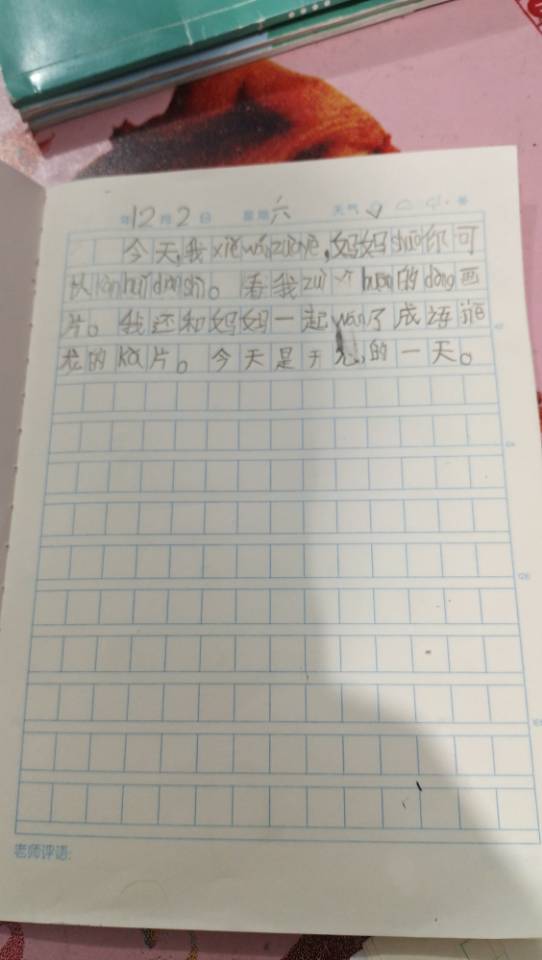 年12月2日 星期六 天气
今天,我xiě wán zuò yè,妈妈shuō你可
以kàn huǐ diàn shì。看我zuì xǐ huan的dòng画
片。我还和妈妈一起wán了成语jiē
龙的kǎ片。今天是开心的一天。
老师评语: